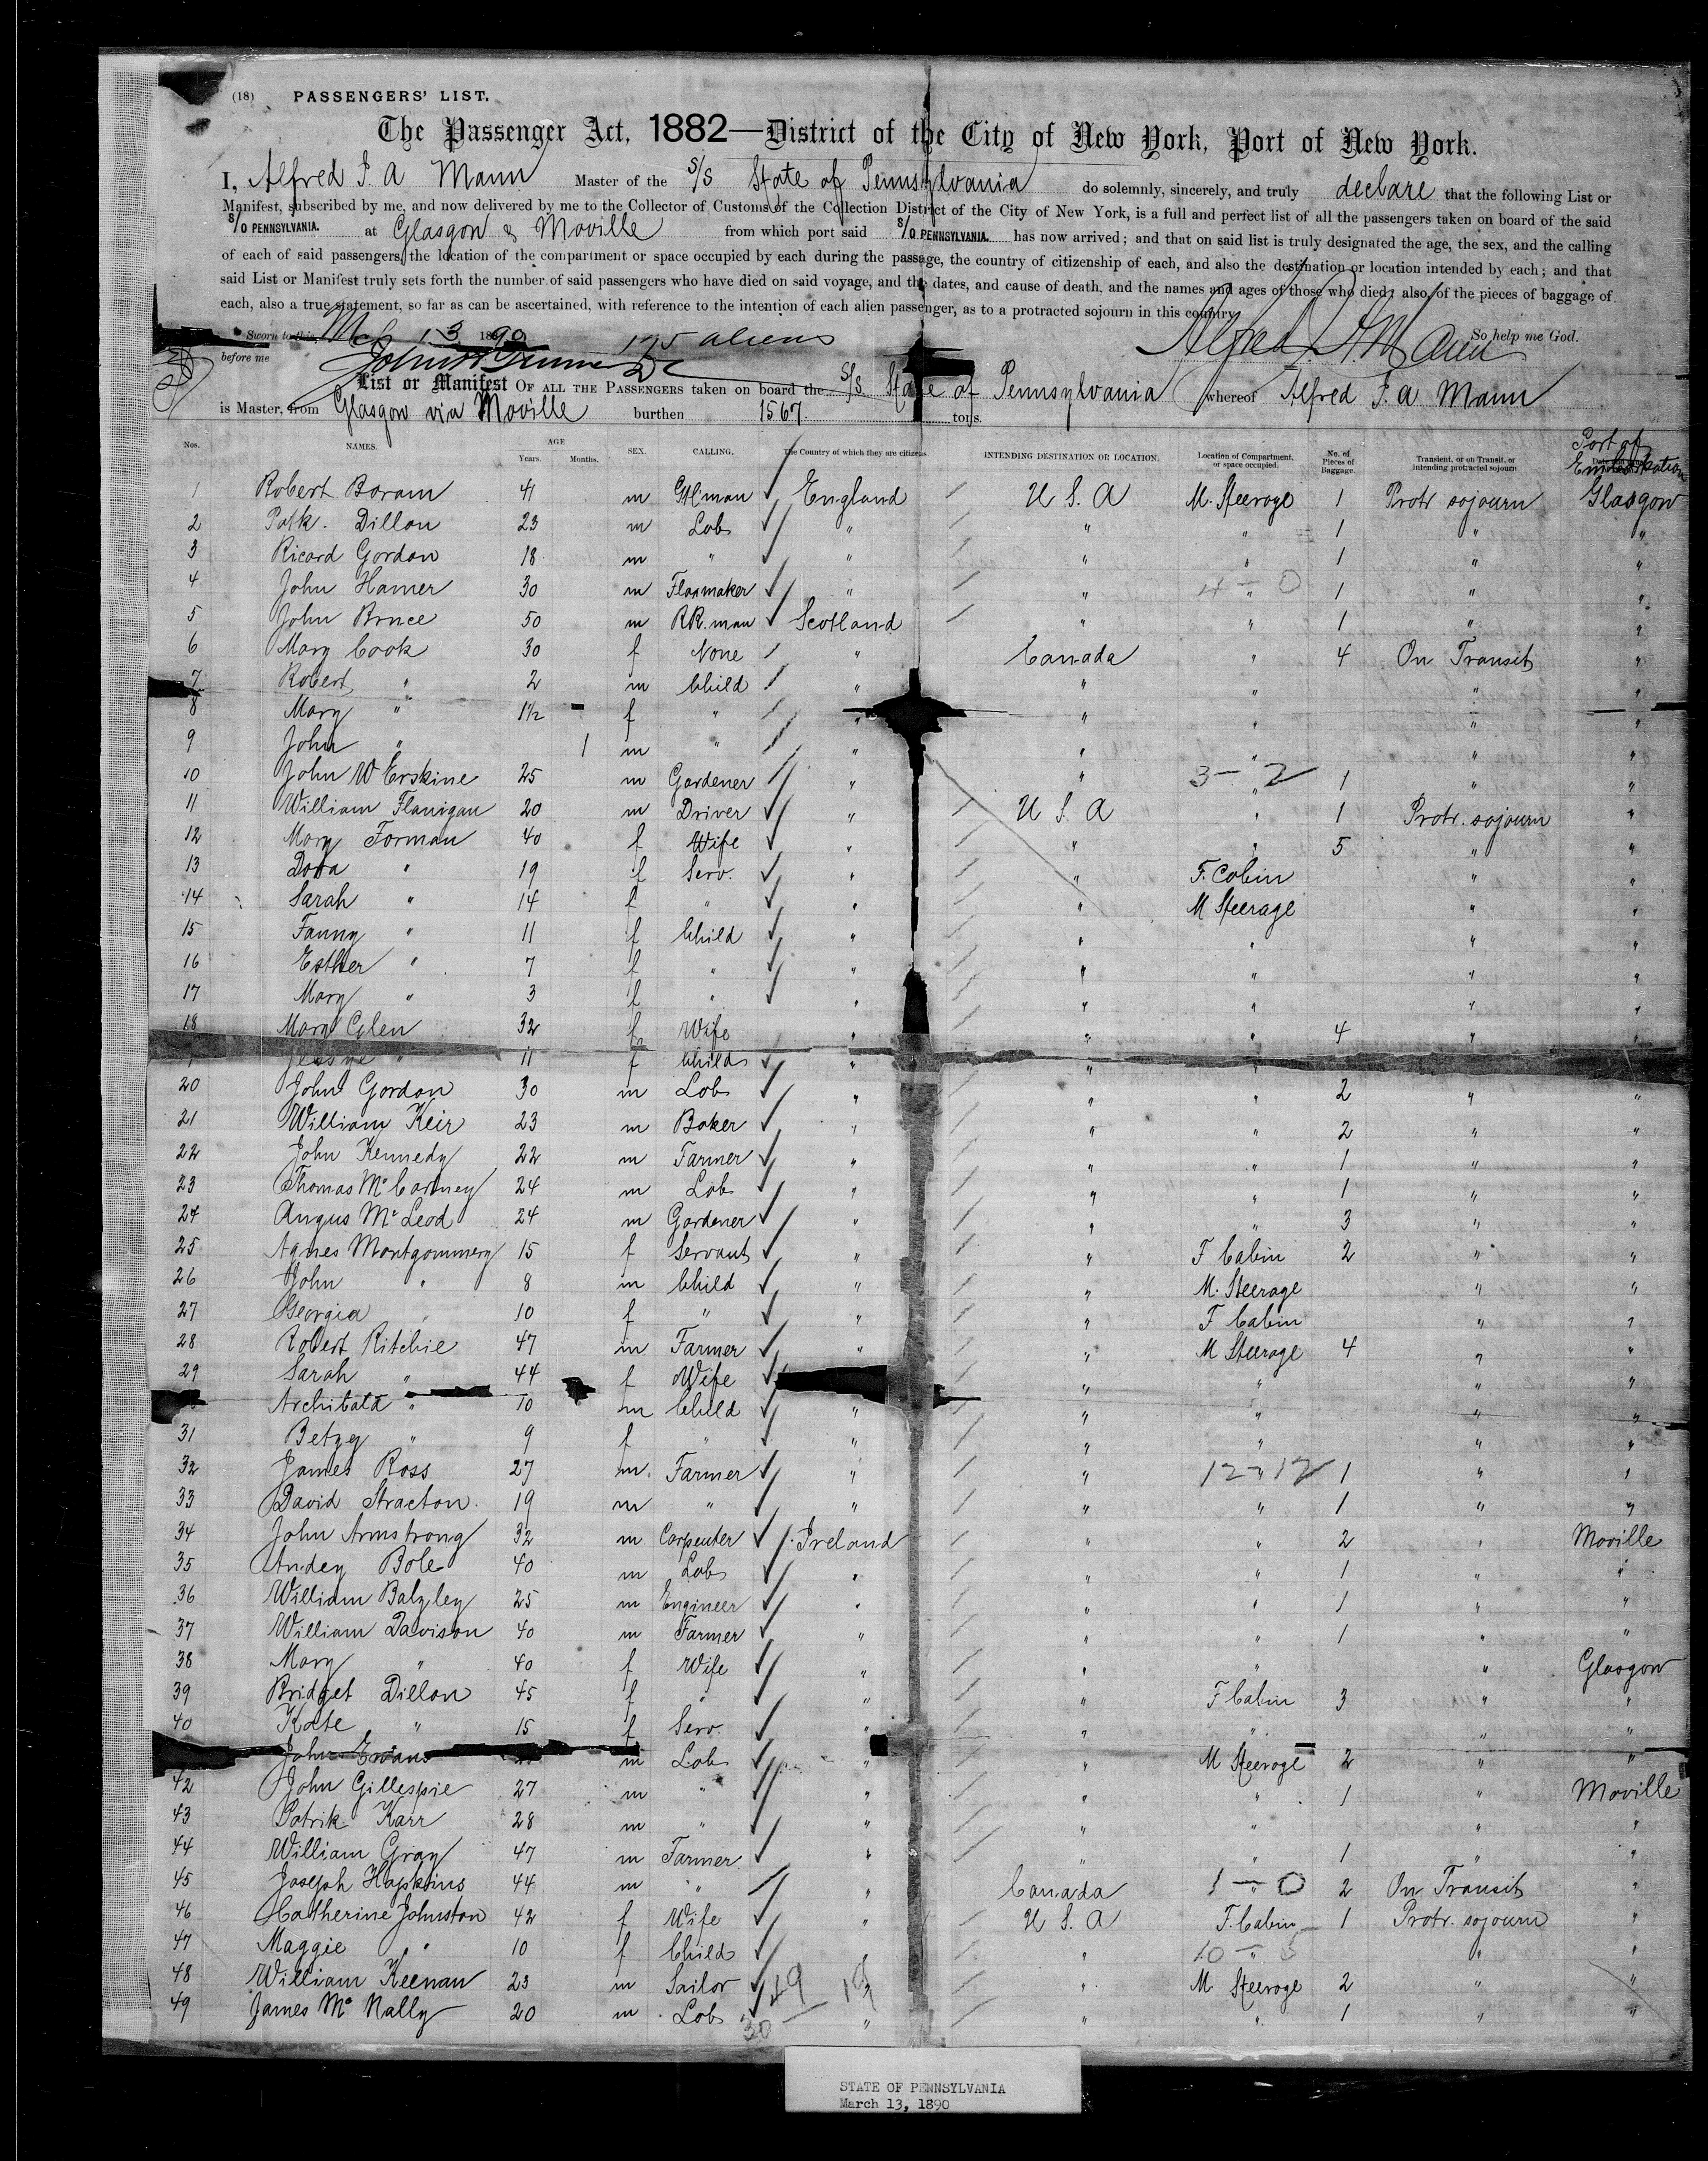 (18) PASSENGERS' LIST.
The Passenger Act, 1882—District of the City of New York, Port of New York.
I, Alfred J. A Mann Master of the S/S State of Pennsylvania do solemnly, sincerely, and truly declare that the following List or
Manifest, subscribed by me, and now delivered by me to the Collector of Customs of the Collection District of the City of New York, is a full and perfect list of all the passengers taken on board of the said
S/O PENNSYLVANIA. at Glasgow & Moville from which port said S/O PENNSYLVANIA. has now arrived; and that on said list is truly designated the age, the sex, and the calling
of each of said passengers, the location of the compartment or space occupied by each during the passage, the country of citizenship of each, and also the destination or location intended by each; and that
said List or Manifest truly sets forth the number of said passengers who have died on said voyage, and the dates, and cause of death, and the names and ages of those who died; also, of the pieces of baggage of
each, also a true statement, so far as can be ascertained, with reference to the intention of each alien passenger, as to a protracted sojourn in this country.
Sworn to this Mch 13 1890 175 aliens Alfred J A Mann So help me God.
before me
List or Manifest OF ALL THE PASSENGERS taken on board the S/S State of Pennsylvania whereof Alfred J. A Mann
is Master, from Glasgow via Moville burthen 1567 tons.
Nos. NAMES. AGE Years. Months. SEX. CALLING. The Country of which they are citizens INTENDING DESTINATION OR LOCATION. Location of Compartment, or space occupied. No. of Pieces of Baggage. Transient, or on Transit, or intending protracted sojourn Port of Embarkation
1 Robert Boram 41 m England U S. A M. Steerage 1 Protr sojourn Glasgow
2 Patk. Dillon 23 m Lab " " " 1 " "
3 Ricard Gordon 18 m " " " " 1 " "
4 John Hamer 30 m " " 4 - " 0 1 " "
5 John Bruce 50 m RR. man Scotland " " 1 " "
6 Mary Cook 30 f None " Canada " 4 On Transit "
7 Robert " 2 m Child " " " " "
8 Mary " 1½ f " " " " " "
9 John " 1 m " " " " " "
10 John W Erskine 25 m Gardener " " 3 - " 2 1 " "
11 William Flanigan 20 m Driver " U S. A " 1 Protr. sojourn "
12 Mary Forman 40 f Wife " " " 5 " "
13 Dora " 19 f Serv. " " F. Cabin " "
14 Sarah " 14 f " " " M Steerage " "
15 Fanny " 11 f Child " " " " "
16 Esther " 7 f " " " " " "
17 Mary " 3 f " " " " " "
18 Mary Glen 32 f Wife " " " 4 " "
" 11 f Child " " "
20 John Gordon 30 m Lab " " " 2 " "
21 William Keir 23 m Baker " " " 2 " "
22 John Kennedy 22 m Farmer " " " 1 " "
23 Thomas McCartney 24 m Lab " " " 1 " "
24 Angus McLeod 24 m Gardener " " " 3 " "
25 Agnes Montgommery 15 f Servant " " F Cabin 2 " "
26 John " 8 m Child " " M. Steerage " "
27 Georgia " 10 f " " " F Cabin " "
28 Robert Ritchie 47 m Farmer " " M Steerage 4 " "
29 Sarah " 44 f Wife " " " "
Archibald " 10 m Child " " " " "
31 Betzy " 9 f " " " " " "
32 James Ross 27 m. Farmer " " 12 - " 12 1 " "
33 David Stracton 19 m " " " " 1 " "
34 John Armstrong 32 m Carpenter Ireland " " 2 " Moville
35 Andey Bole 40 m Lab " " " 1 " "
36 William Balzley 25 m Engineer " " " 1 " "
37 William Davison 40 m Farmer " " " 1 " "
38 Mary " 40 f Wife " " " " Glasgow
39 Bridget Dillon 45 f " " " F Cabin 3 " "
40 Kate " 15 f Serv. " " " " "
John Evans m Lab " " M Steerage 2 " "
42 John Gillespie 27 m " " " " 1 " Moville
43 Patrik Karr 28 m " " " " " "
44 William Gray 47 m Farmer " " " 1 " "
45 Joseph Hopkins 44 m " " Canada 1 - " 0 2 On Transit "
46 Catherine Johnston 42 f Wife " U S. A F. Cabin 1 Protr. sojourn "
47 Maggie " 10 f Child " " 10 - " " "
48 William Keenan 23 m Sailor " " M Steerage 2 " "
49 James McNally 20 m Lab " " " 1 " "
19
30
STATE OF PENNSYLVANIA
March 13, 1890